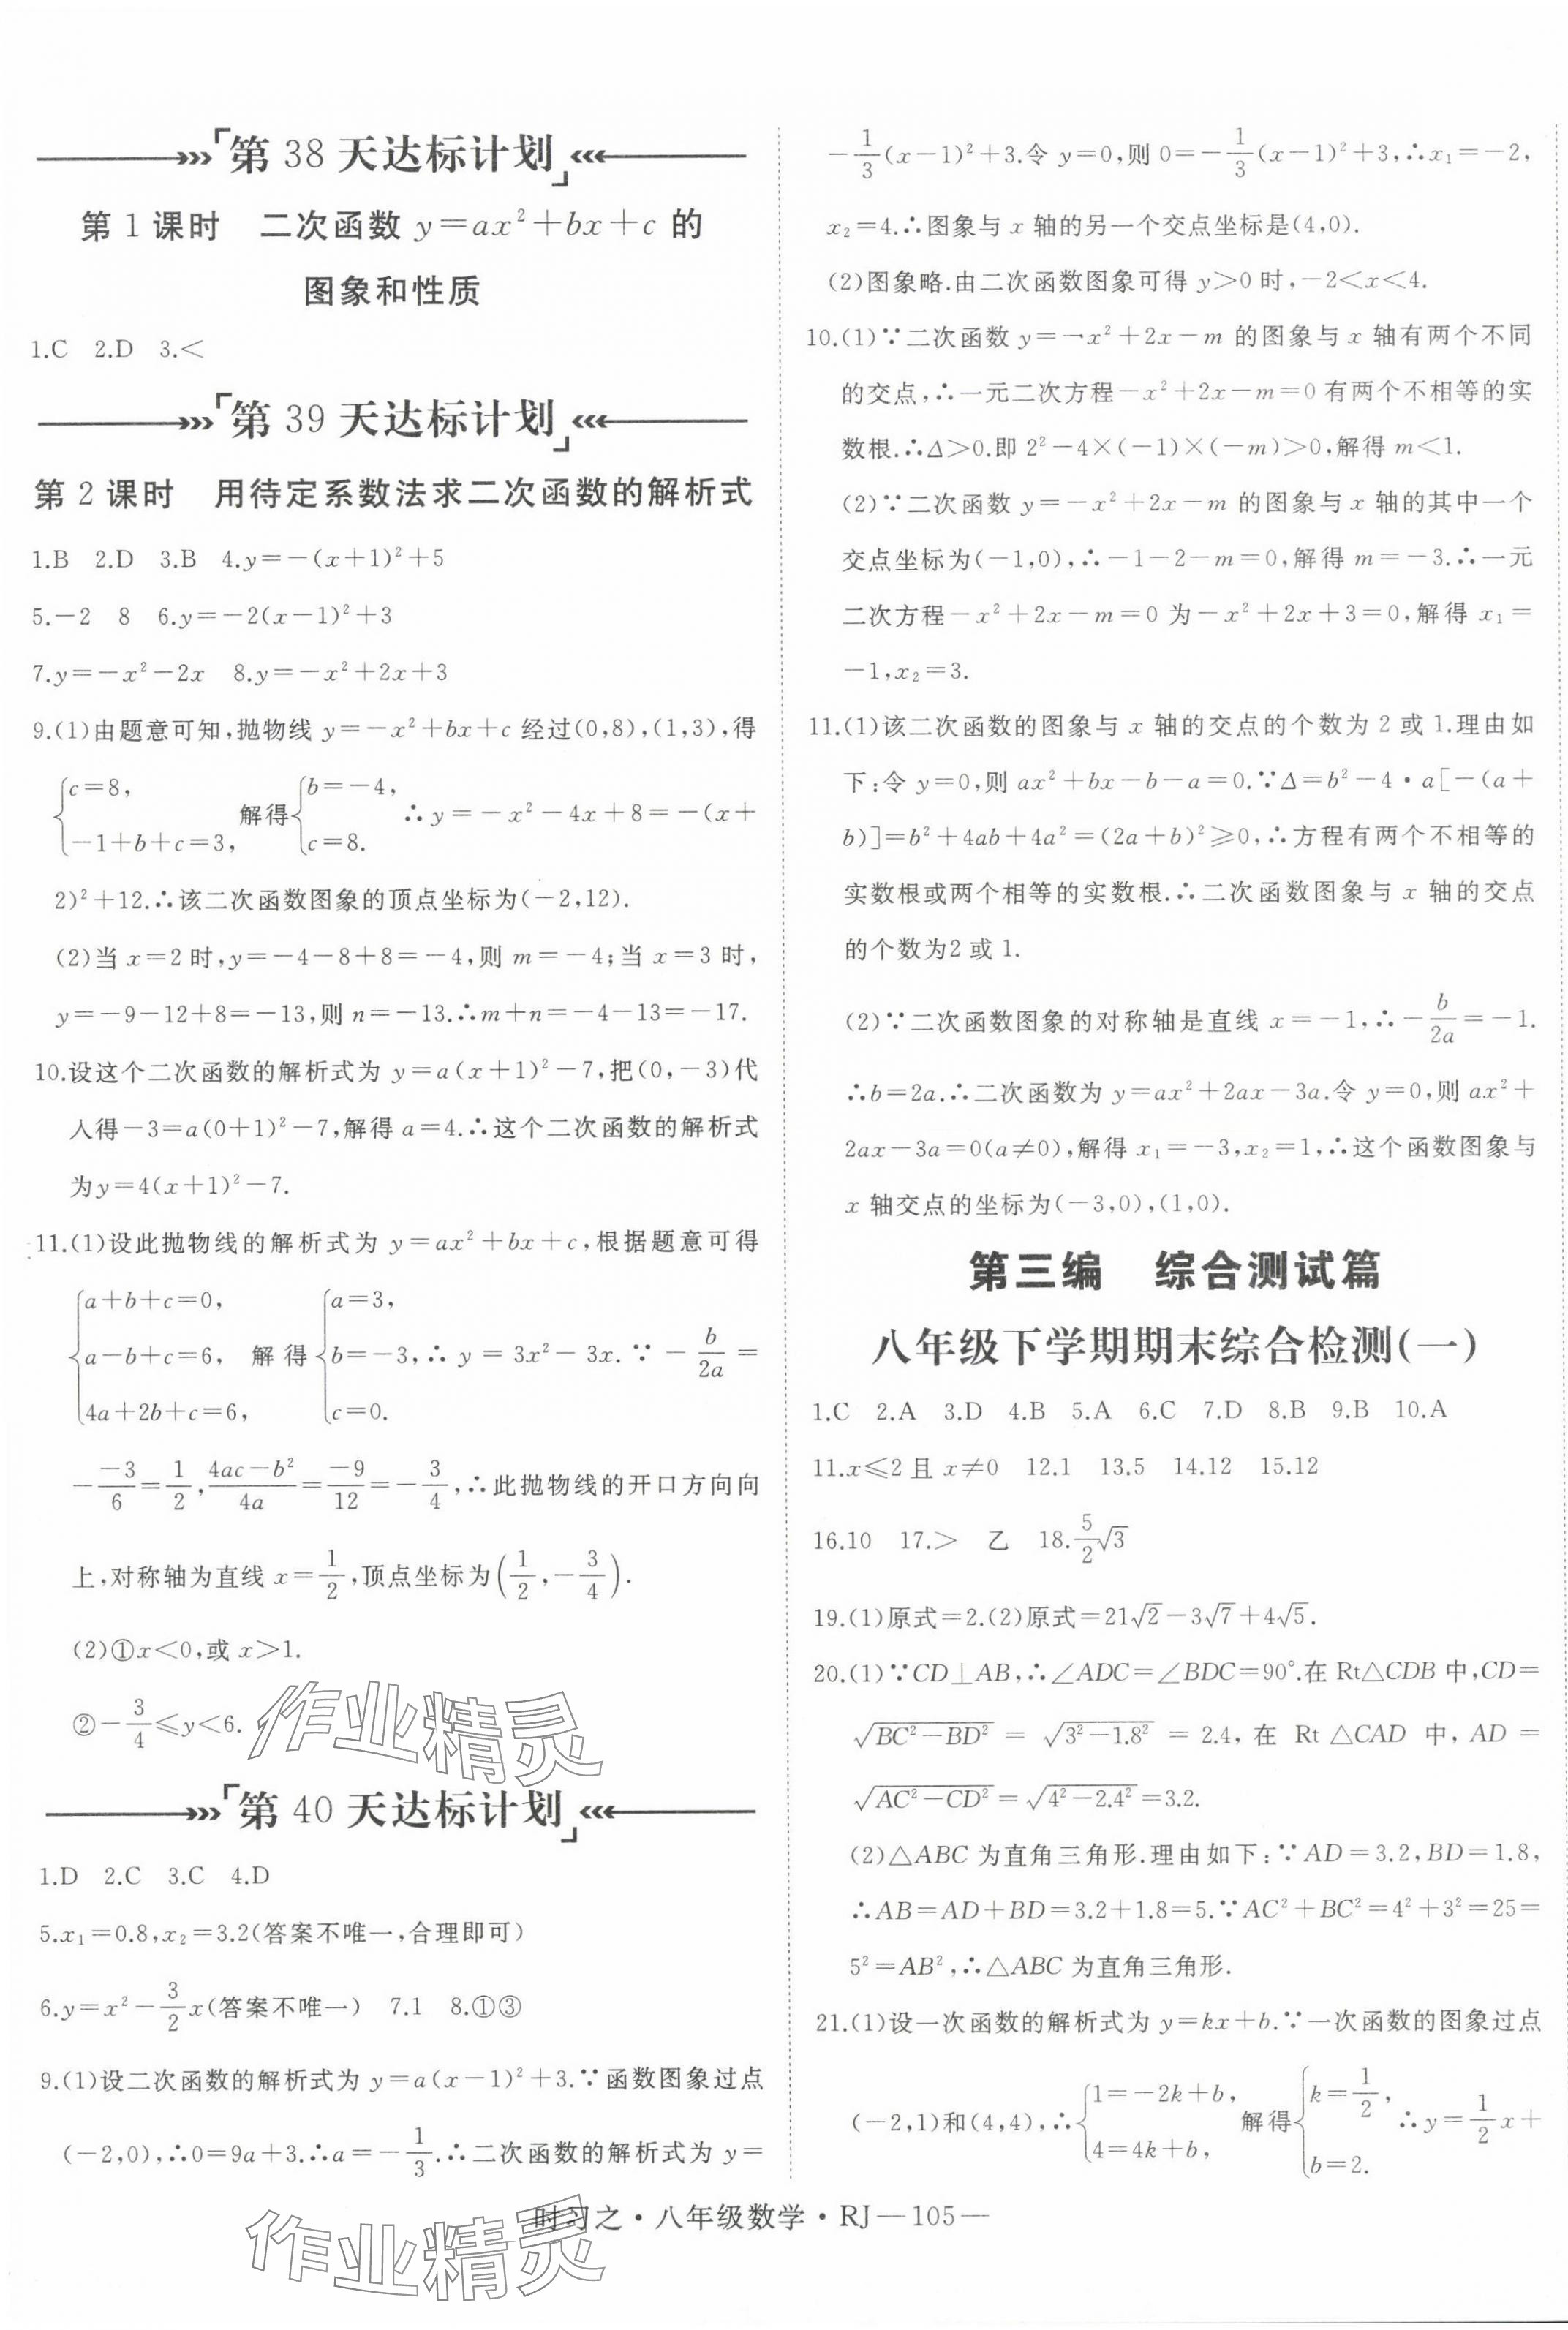 第 38 天达标计划
第 1 课时　二次函数 y=ax²+bx+c 的
图象和性质
1.C　2.D　3.<
第 39 天达标计划
第 2 课时　用待定系数法求二次函数的解析式
1.B　2.D　3.B　4.y=-(x+1)²+5
5.-2　8　6.y=-2(x-1)²+3
7.y=-x²-2x　8.y=-x²+2x+3
9.(1)由题意可知,抛物线 y=-x²+bx+c 经过(0,8),(1,3),得
{c=8, -1+b+c=3, 解得{b=-4, c=8. ∴y=-x²-4x+8=-(x+
2)²+12.∴该二次函数图象的顶点坐标为(-2,12).
(2)当 x=2 时,y=-4-8+8=-4,则 m=-4;当 x=3 时,
y=-9-12+8=-13,则 n=-13.∴m+n=-4-13=-17.
10.设这个二次函数的解析式为 y=a(x+1)²-7,把(0,-3)代
入得-3=a(0+1)²-7,解得 a=4.∴这个二次函数的解析式
为y=4(x+1)²-7.
11.(1)设此抛物线的解析式为 y=ax²+bx+c,根据题意可得
{a+b+c=0, a-b+c=6, 4a+2b+c=6, 解得{a=3, b=-3, c=0. ∴y=3x²-3x.∵-b/2a=
--3/6=1/2,(4ac-b²)/4a=-9/12=-3/4,∴此抛物线的开口方向向
上,对称轴为直线 x=1/2,顶点坐标为(1/2,-3/4).
(2)①x<0,或 x>1.
②-3/4≤y<6.
作业精灵
第 40 天达标计划
1.D　2.C　3.C　4.D
5.x₁=0.8,x₂=3.2(答案不唯一,合理即可)
6.y=x²-3/2x(答案不唯一)　7.1　8.①③
9.(1)设二次函数的解析式为 y=a(x-1)²+3.∵函数图象过点
(-2,0),∴0=9a+3.∴a=-1/3.∴二次函数的解析式为 y=
-1/3(x-1)²+3.令 y=0,则 0=-1/3(x-1)²+3,∴x₁=-2,
x₂=4.∴图象与 x 轴的另一个交点坐标是(4,0).
(2)图象略.由二次函数图象可得 y>0 时,-2<x<4.
10.(1)∵二次函数 y=-x²+2x-m 的图象与 x 轴有两个不同
的交点,∴一元二次方程-x²+2x-m=0 有两个不相等的实
数根.∴Δ>0.即 2²-4×(-1)×(-m)>0,解得 m<1.
(2)∵二次函数 y=-x²+2x-m 的图象与 x 轴的其中一个
交点坐标为(-1,0),∴-1-2-m=0,解得 m=-3.∴一元
二次方程-x²+2x-m=0 为-x²+2x+3=0,解得 x₁=
-1,x₂=3.
11.(1)该二次函数的图象与 x 轴的交点的个数为 2 或 1.理由如
下:令 y=0,则 ax²+bx-b-a=0.∵Δ=b²-4·a[-(a+
b)]=b²+4ab+4a²=(2a+b)²≥0,∴方程有两个不相等的
实数根或两个相等的实数根.∴二次函数图象与 x 轴的交点
的个数为2 或 1.
(2)∵二次函数图象的对称轴是直线 x=-1,∴-b/2a=-1.
∴b=2a.∴二次函数为 y=ax²+2ax-3a.令 y=0,则 ax²+
2ax-3a=0(a≠0),解得 x₁=-3,x₂=1,∴这个函数图象与
x 轴交点的坐标为(-3,0),(1,0).
第三编　综合测试篇
八年级下学期期末综合检测(一)
1.C　2.A　3.D　4.B　5.A　6.C　7.D　8.B　9.B　10.A
11.x≤2 且 x≠0　12.1　13.5　14.12　15.12
16.10　17.>　乙　18.5/2√3
19.(1)原式=2.(2)原式=21√2-3√7+4√5.
20.(1)∵CD⊥AB,∴∠ADC=∠BDC=90°.在 Rt△CDB 中,CD=
√(BC²-BD²)=√(3²-1.8²)=2.4,在 Rt△CAD 中,AD=
√(AC²-CD²)=√(4²-2.4²)=3.2.
(2)△ABC 为直角三角形.理由如下:∵AD=3.2,BD=1.8,
∴AB=AD+BD=3.2+1.8=5.∵AC²+BC²=4²+3²=25=
5²=AB²,∴△ABC 为直角三角形.
21.(1)设一次函数的解析式为 y=kx+b.∵一次函数的图象过点
(-2,1)和(4,4),∴{1=-2k+b, 4=4k+b, 解得{k=1/2, b=2. ∴y=1/2x+
时习之·八年级数学·RJ—105—
作业精灵